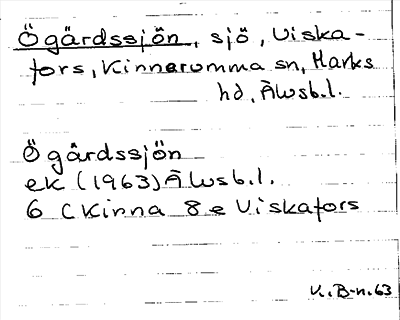 Ögärdssjön, sjö, Viska-
fors, Kinnarumma sn, Marks
hd, Älvsb.l.
Ögärdssjön
ek (1963) Älvsb.l.
6 C Kinna 8 e Viskafors
K. B-n. 63